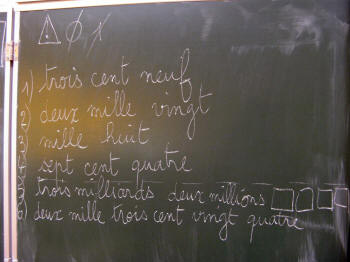 1) trois cent neuf
2) deux mille vingt
3) mille huit
4) sept cent quatre
5) trois milliards deux millions
6) deux mille trois cent vingt quatre